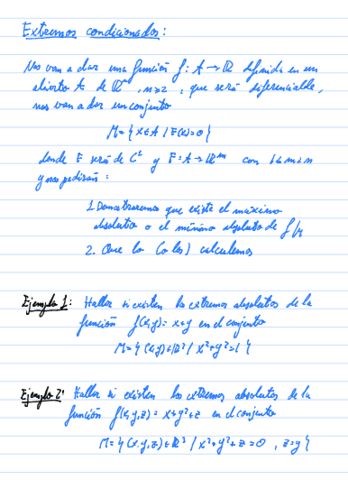 Extremos condicionados:
Nos van a dar una función f: A → ℝ definida en un
abierto A de ℝⁿ, n≥2, que será diferenciable,
nos van a dar un conjunto
M = { x∈A / F(x)=0 }
donde F será de C¹ y F: A → ℝᵐ con 1≤m<n
y nos pedirán:
1. Demostraremos que existe el máximo
absoluto o el mínimo absoluto de f/M
2. Que lo (o los) calculemos
Ejemplo 1: Hallar si existen los extremos absolutos de la
función f(x,y)= x+y en el conjunto
M = { (x,y)∈ℝ² / x²+y²=1 }
Ejemplo 2: Hallar si existen los extremos absolutos de la
función f(x,y,z) = x+y²+z en el conjunto
M = { (x,y,z)∈ℝ³ / x²+y²+z=0 , z=y }